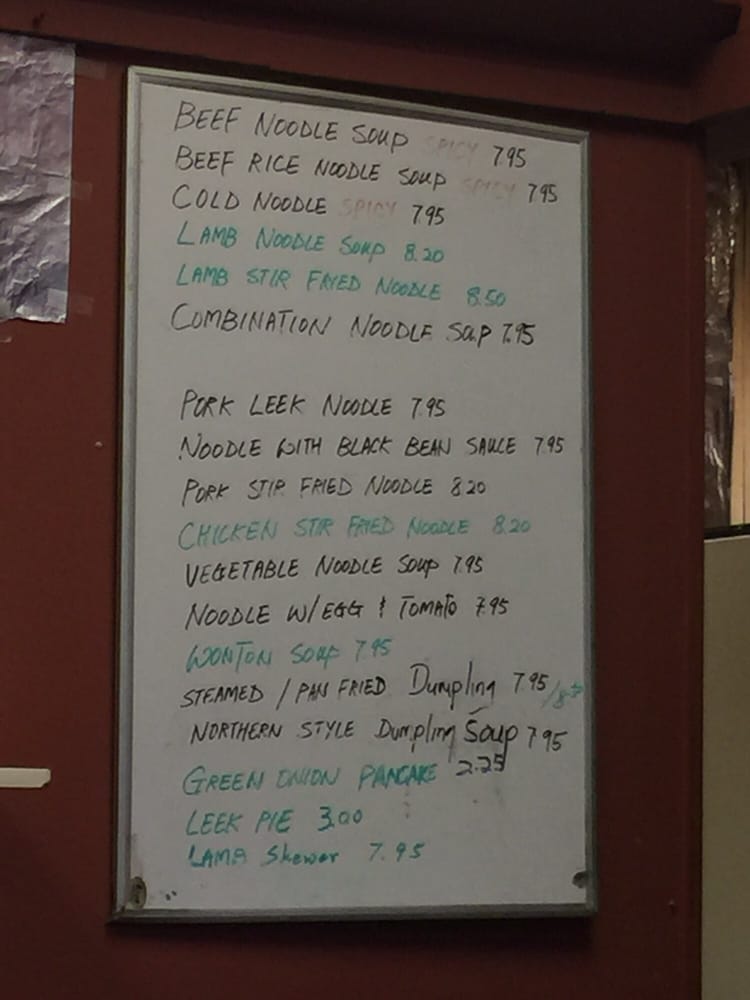 BEEF NOODLE SOUP SPICY 7.95
BEEF RICE NOODLE SOUP SPICY 7.95
COLD NOODLE SPICY 7.95
LAMB NOODLE SOUP 8.20
LAMB STIR FRIED NOODLE 8.50
COMBINATION NOODLE SOUP 7.95
PORK LEEK NOODLE 7.95
NOODLE WITH BLACK BEAN SAUCE 7.95
PORK STIR FRIED NOODLE 8.20
CHICKEN STIR FRIED NOODLE 8.20
VEGETABLE NOODLE SOUP 7.95
NOODLE W/EGG & TOMATO 7.95
WONTON SOUP 7.95
STEAMED / PAN FRIED Dumpling 7.95
NORTHERN STYLE Dumpling Soup 7.95
GREEN ONION PANCAKE 2.25
LEEK PIE 3.00
LAMB Skewer 7.95